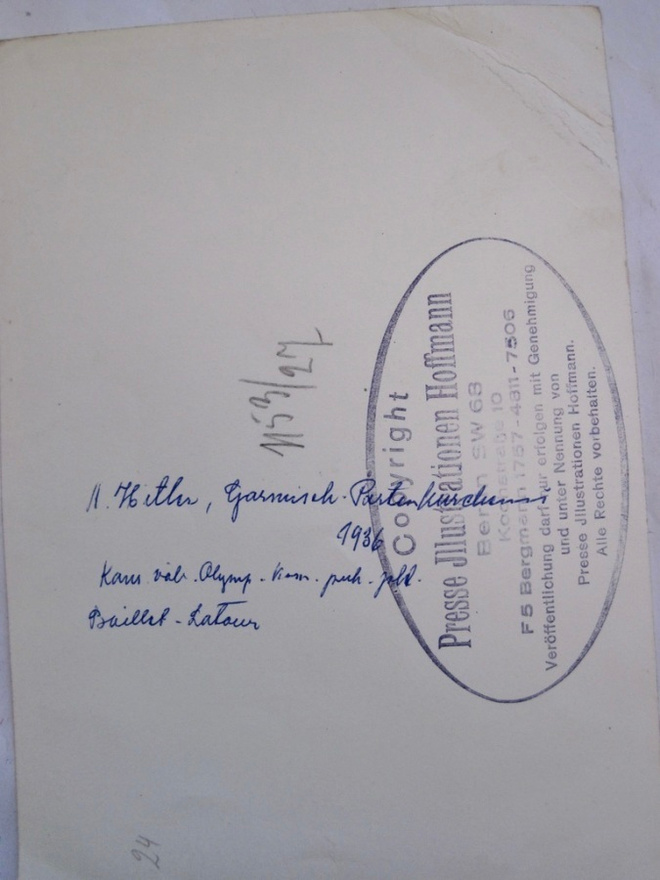 1153/27
A. Hitler, Garmisch-Partenkirchenis
1936
Kam. Olymp.
Baillet-Latour
24
Copyright
Presse Jllustrationen Hoffmann
Berlin SW 68
Kochstraße 10
F5 Bergmann 1757-4311-7506
Veröffentlichung darf nur erfolgen mit Genehmigung
und unter Nennung von
Presse Jllustrationen Hoffmann.
Alle Rechte vorbehalten.